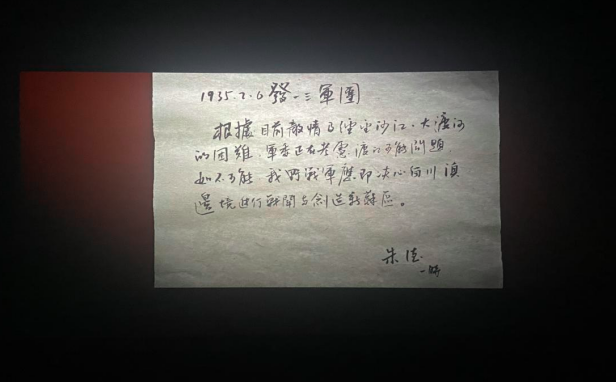 1935.2.6 發一三軍團
根據目前敵情及經金沙江、大渡河
的困難,軍委正在考慮渡江可能問題,
如不可能,我野戰軍應即决心留川滇
邊境進行戰鬥与創造新蘇區。
朱德